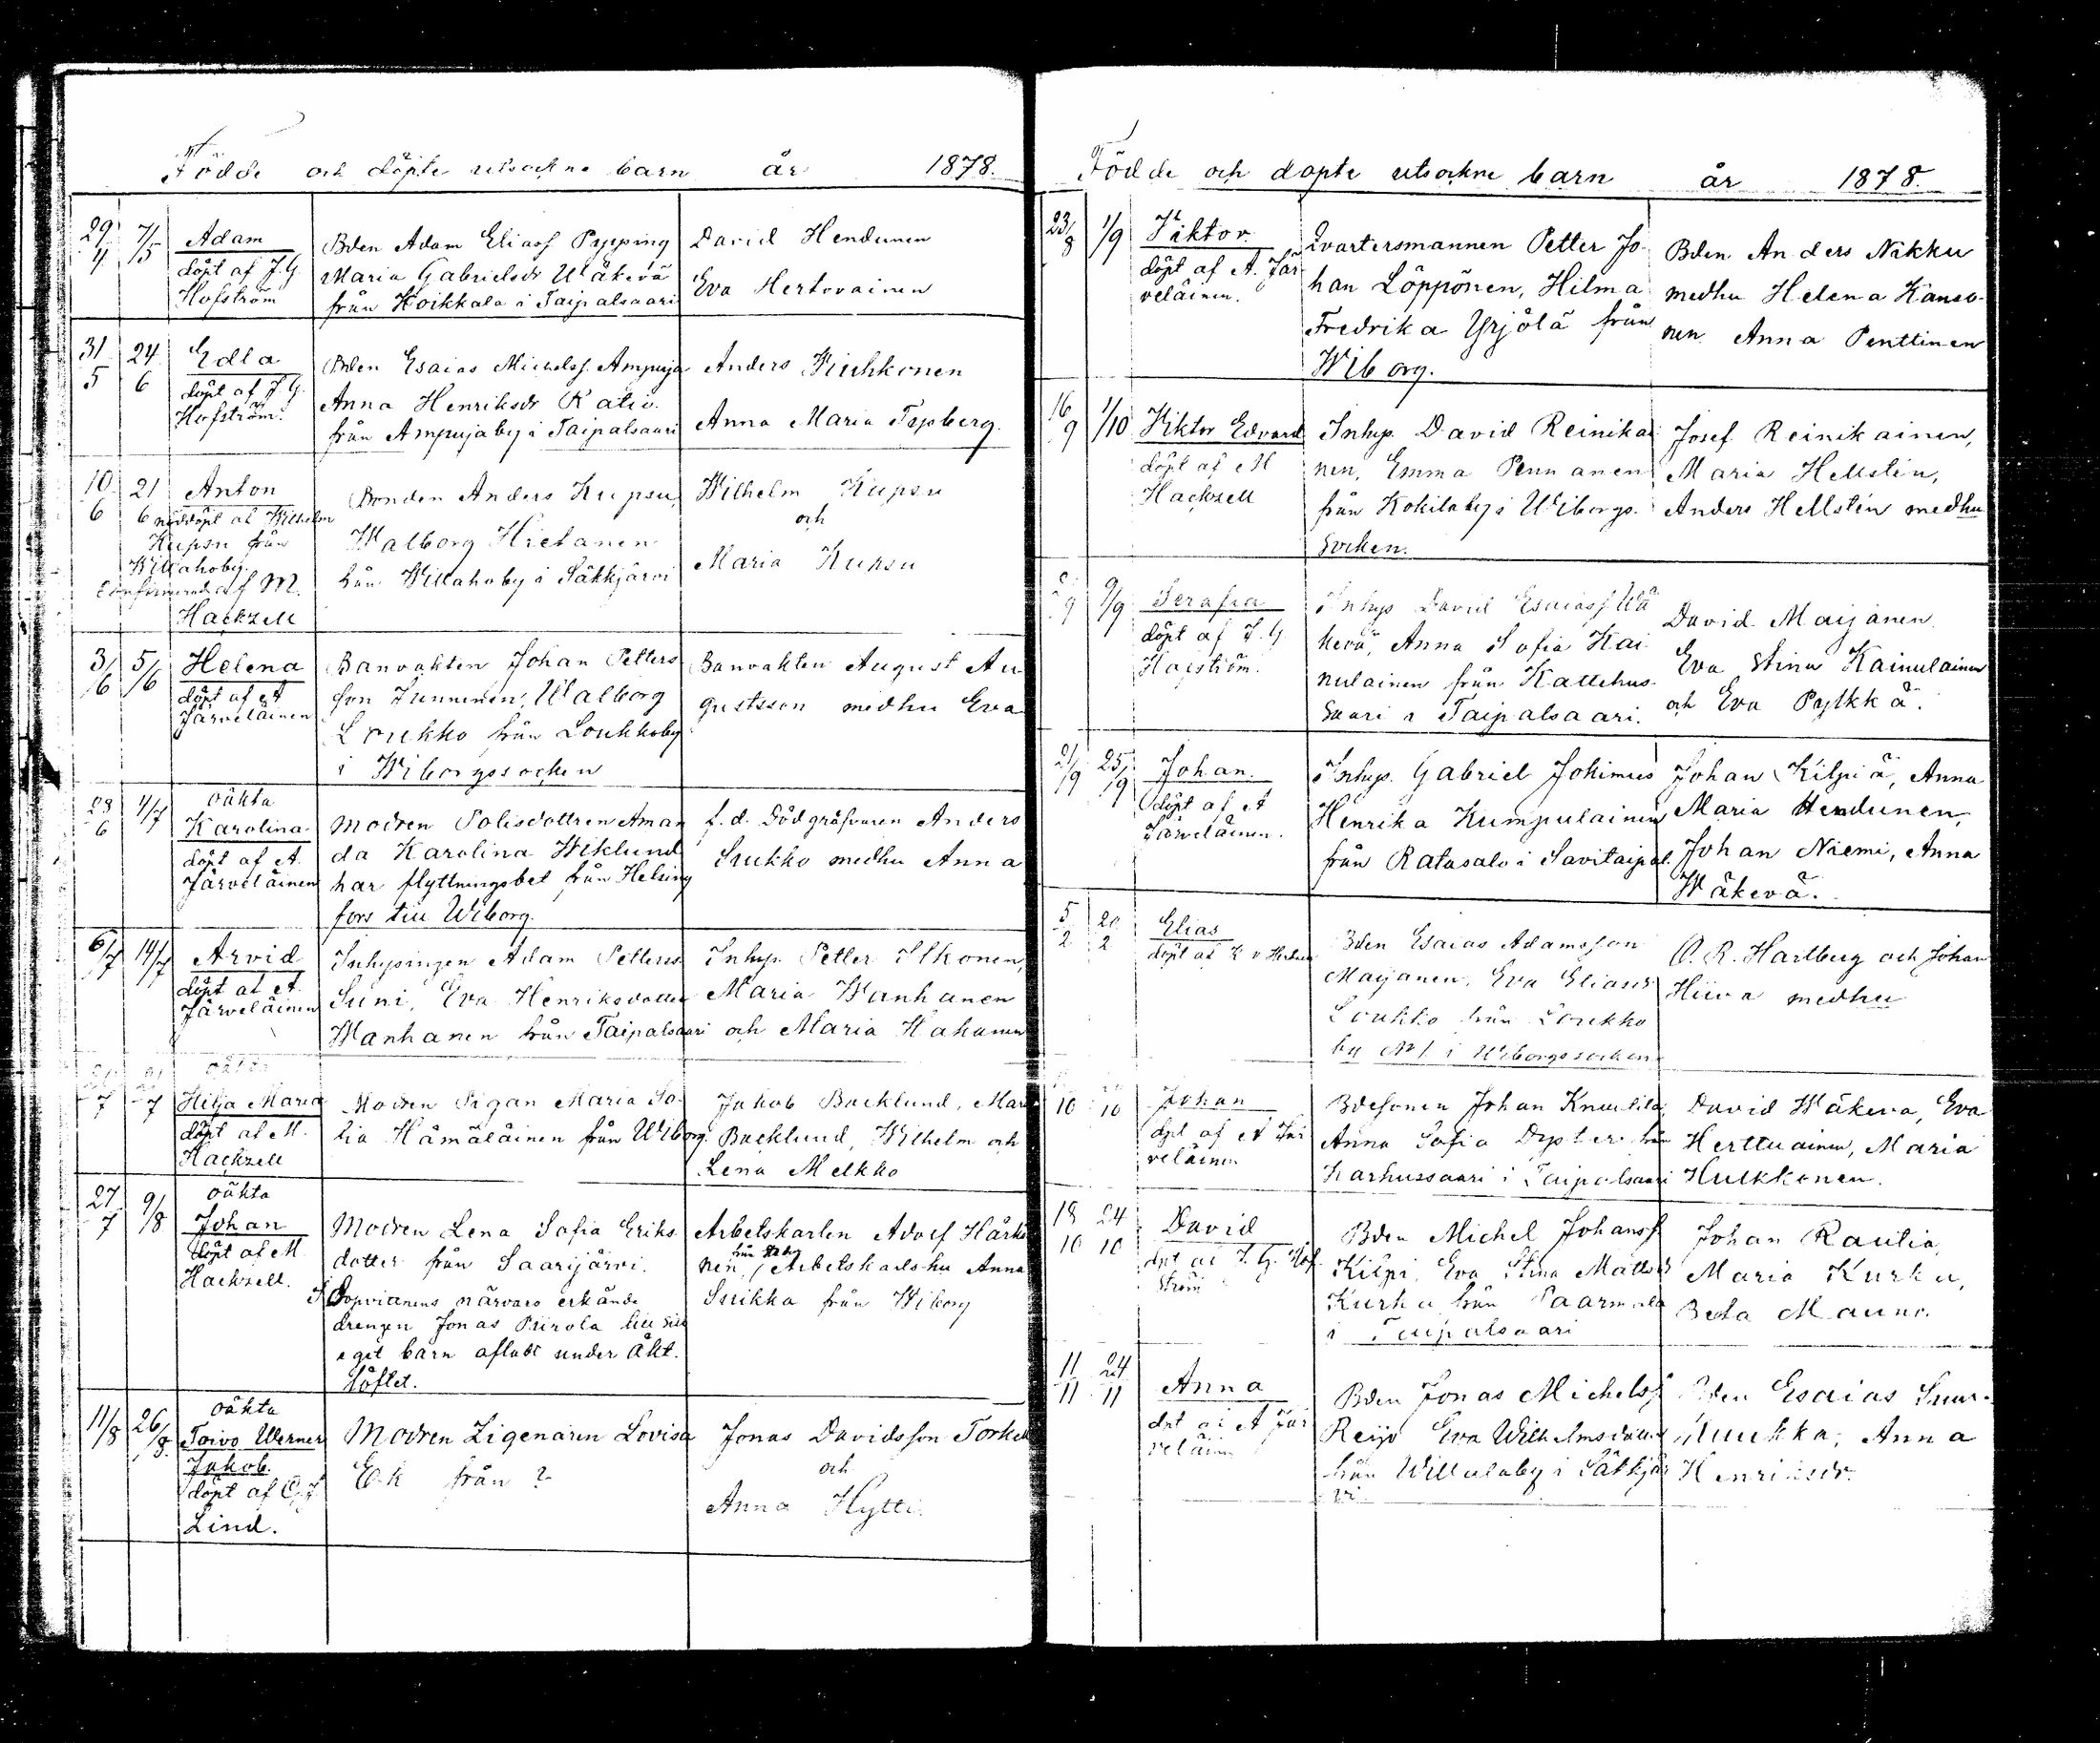 Födde och döpte utsockne barn år 1878.
29/4 7/5 Adam
döpt af J. G
Hofström
Bden Adam Eliass Pypping
Maria Gabrielsdr Wäkevä
från Koikkala i Taipalsaari
David Hendunen
Eva Hertovainen
31/5 24/6 Edla
döpt af J G.
Hofström.
Bden Esaias Michelss. Ampuja
Anna Henriksdr
från Ampujaby i Taipalsaari
Anders Kiuhkonen
Anna Maria
10/6 21/6 Anton
nöddöpt af Wilhelm
Kupsu från
Willahoby.
af M.
Hackzell
Bonden Anders Kupsu,
Walborg Hietanen
från Willahoby i Säkkjärvi
Wilhelm Kupsu
och
Maria Kupsu
3/6 5/6 Helena
döpt af A
Järveläinen
Banvakten Johan Petters
son Junnenen, Walborg
Loukko från Loukkoby
i Wiborgssocken
Banvakten August Au
gustsson medhu Eva
28/6 4/7 oäkta
Karolina
döpt af A.
Järveläinen
Modren Polisdottren Aman
da Karolina Wiklund
har flyttningsbet från Helsing
fors till Wiborg.
f.d. Dödgräfvaren Anders
Suukko medhu Anna
6/7 14/7 Arvid
döpt af A.
Järveläinen
Inhysingen Adam Petterss
Suni, Eva Henriksdotter
Wanhanen från Taipalsaari
Inhys. Petter Ilkonen,
Maria Wanhanen
och Maria Hahunen
7 7 oäkta
Hilja Maria
döpt af M.
Hackzell
Modren Pigan Maria So-
fia Hämäläinen från Wiborg.
Jakob Backlund, Mar
Backlund, Wilhelm och
Lena Melkko
27/7 9/8 oäkta
Johan
döpt af M
Hackzell.
Modren Lena Sofia Eriks
dotter från Saarijärvi.
I Dopvittnens närvaro erkände
drengen Jonas Piirola till sitt
eget barn aflat under äkt.
löftet.
Arbetskarlen Adolf Härkö
nen, Arbetskarlshu Anna
Suikka från Wiborg
11/8 26/8 oäkta
Toivo Werner
Jakob.
döpt af C. J.
Lind.
Modren Zigenaren Lovisa
Ek från ?
Jonas Davidsson Torkel
och
Anna Hytti.
Födde och döpte utsockne barn år 1878.
23/8 1/9 Viktor.
döpt af A. Jär
veläinen.
Qvartersmannen Petter Jo-
han Löppönen, Hilma
Fredrika Yrjölä från
Wiborg.
Bden Anders Nikku
medhu Helena Kanso-
nen Anna Penttinen
16/9 1/10 Viktor Edvard
döpt af M
Hackzell
Inhys. David Reinikai
nen, Emma Pennanen
från Kokilaby i Wiborgs.
Socken.
Josef Reinikainen,
Maria Hellstén,
Anders Hellstén medhu
9 9/9 Serafia
döpt af J. G
Hofström.
Inhys David Esaiass Wä
kevä, Anna Sofia Kai
nulainen från Kattehus
saari i Taipalsaari.
David Maijanen
Eva Stina Kainulainen
och Eva Pylkkä.
2/9 25/9 Johan.
döpt af A
Järveläinen.
Inhys. Gabriel Jokimies
Henrika Kumpulainen
från Ratasalo i Savitaipal.
Johan Kilpiä, Anna
Maria Hendunen,
Johan Niemi, Anna
Wäkevä.
5/2 20/2 Elias
döpt af K v
Bden Esaias Adamsson
Maijanen, Eva Eliasdr
Loukko från Loukko
by No 1. i Wiborgssocken
A. R. Hartberg och Johan
Hiiva medhu
10 10 Johan
dpt af A Jär
veläinen
Bdesonen Johan Knuutila
Anna Sofia från
Karhussaari i Taipalsaari
David Wäkeva, Eva
Herttuainen, Maria
Hulkkonen.
18/10 24/10 David
dpt af J. G. Hof
ström
Bden Michel Johanss
Kilpi, Eva Stina Mattsdr
Kurhu, från Paarmala
i Taipalsaari
Johan Rautia,
Maria Kurhu,
Beta Mauno.
11/11 24/11 Anna
dpt af A Jär
veläinen
Bden Jonas Michelss
Reijo Eva Wilhelmsdotter
från Willalaby i Säkkjär
vi
Bden Esaias Suur-
Muukka, Anna
Henriksdr.